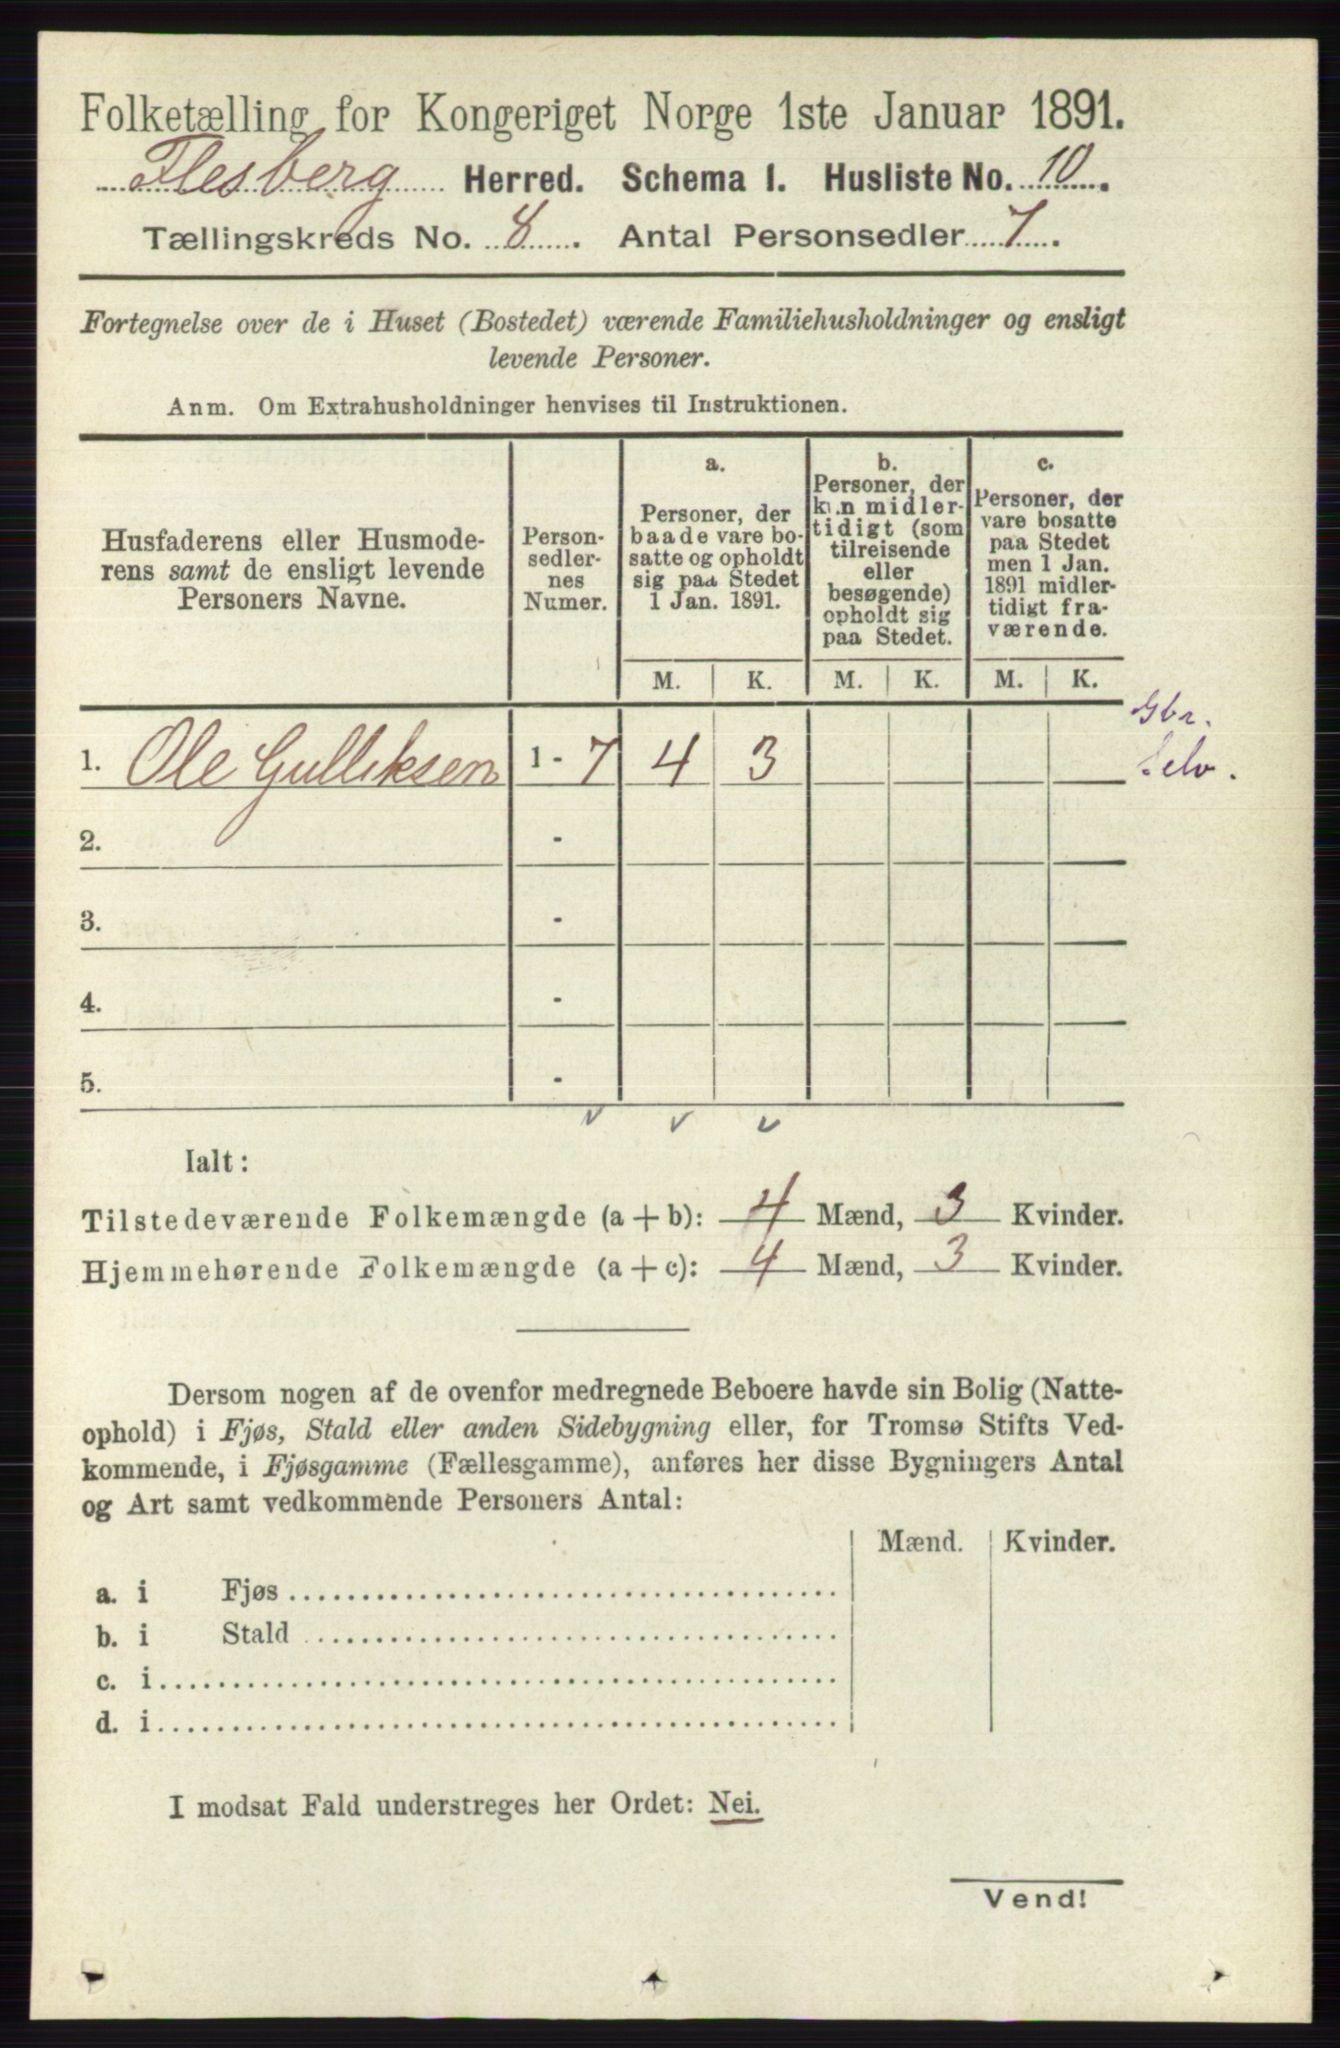 Folketælling for Kongeriget Norge 1ste Januar 1891.
Flesberg Herred. Schema I. Husliste No. 10.
Tællingskreds No. 8. Antal Personsedler 7.
Fortegnelse over de i Huset (Bostedet) værende Familiehusholdninger og ensligt
levende Personer.
Anm. Om Extrahusholdninger henvises til Instruktionen.
Husfaderens eller Husmode-
rens samt de ensligt levende
Personers Navne.
Person-
sedler-
nes
Numer.
a.
Personer, der
baade vare bo-
satte og opholdt
sig paa Stedet
1 Jan. 1891.
b.
Personer, der
kun midler-
tidigt (som
tilreisende
eller
besøgende)
opholdt sig
paa Stedet.
c.
Personer, der
vare bosatte
paa Stedet
men 1 Jan.
1891 midler-
tidigt fra-
værende.
M. K. M. K. M. K.
Gbr.
1. Ole Gulliksen 1 - 7 4 3 Selv.
2. -
3. -
4. -
5. -
Ialt:
Tilstedeværende Folkemængde (a + b): 4 Mænd, 3 Kvinder.
Hjemmehørende Folkemængde (a + c): 4 Mænd, 3 Kvinder.
Dersom nogen af de ovenfor medregnede Beboere havde sin Bolig (Natte-
ophold) i Fjøs, Stald eller anden Sidebygning eller, for Tromsø Stifts Ved-
kommende, i Fjøsgamme (Fællesgamme), anføres her disse Bygningers Antal
og Art samt vedkommende Personers Antal:
Mænd. Kvinder.
a. i Fjøs
b. i Stald
c. i
d. i
I modsat Fald understreges her Ordet: Nei.
Vend!